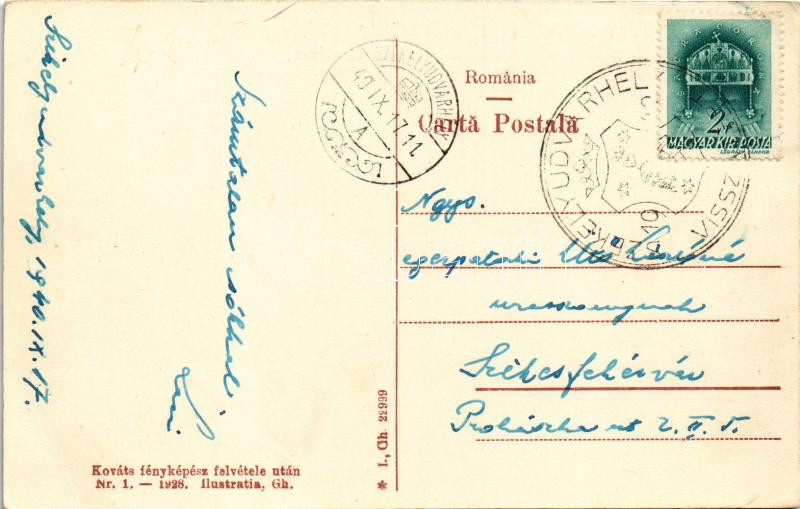 Székelyudvarhely, 1940. IX. 17.
Számtalan csókkal,
România
Cartă Postală
SZÉKELYUDVARHELY
40 IX. 17 11
A
SZÉKELYUDVARHELY
MAGYAR KIR. POSTA
LÉGRÁDY SÁNDOR
2f
Ngys.
egerpataki
uraasszonynak
Székesfehérvár
Prohászka út 2. II. 5.
Kováts fényképész felvétele után
Nr. 1. — 1928. Ilustratia, Gh.
* I., Gh. 22999